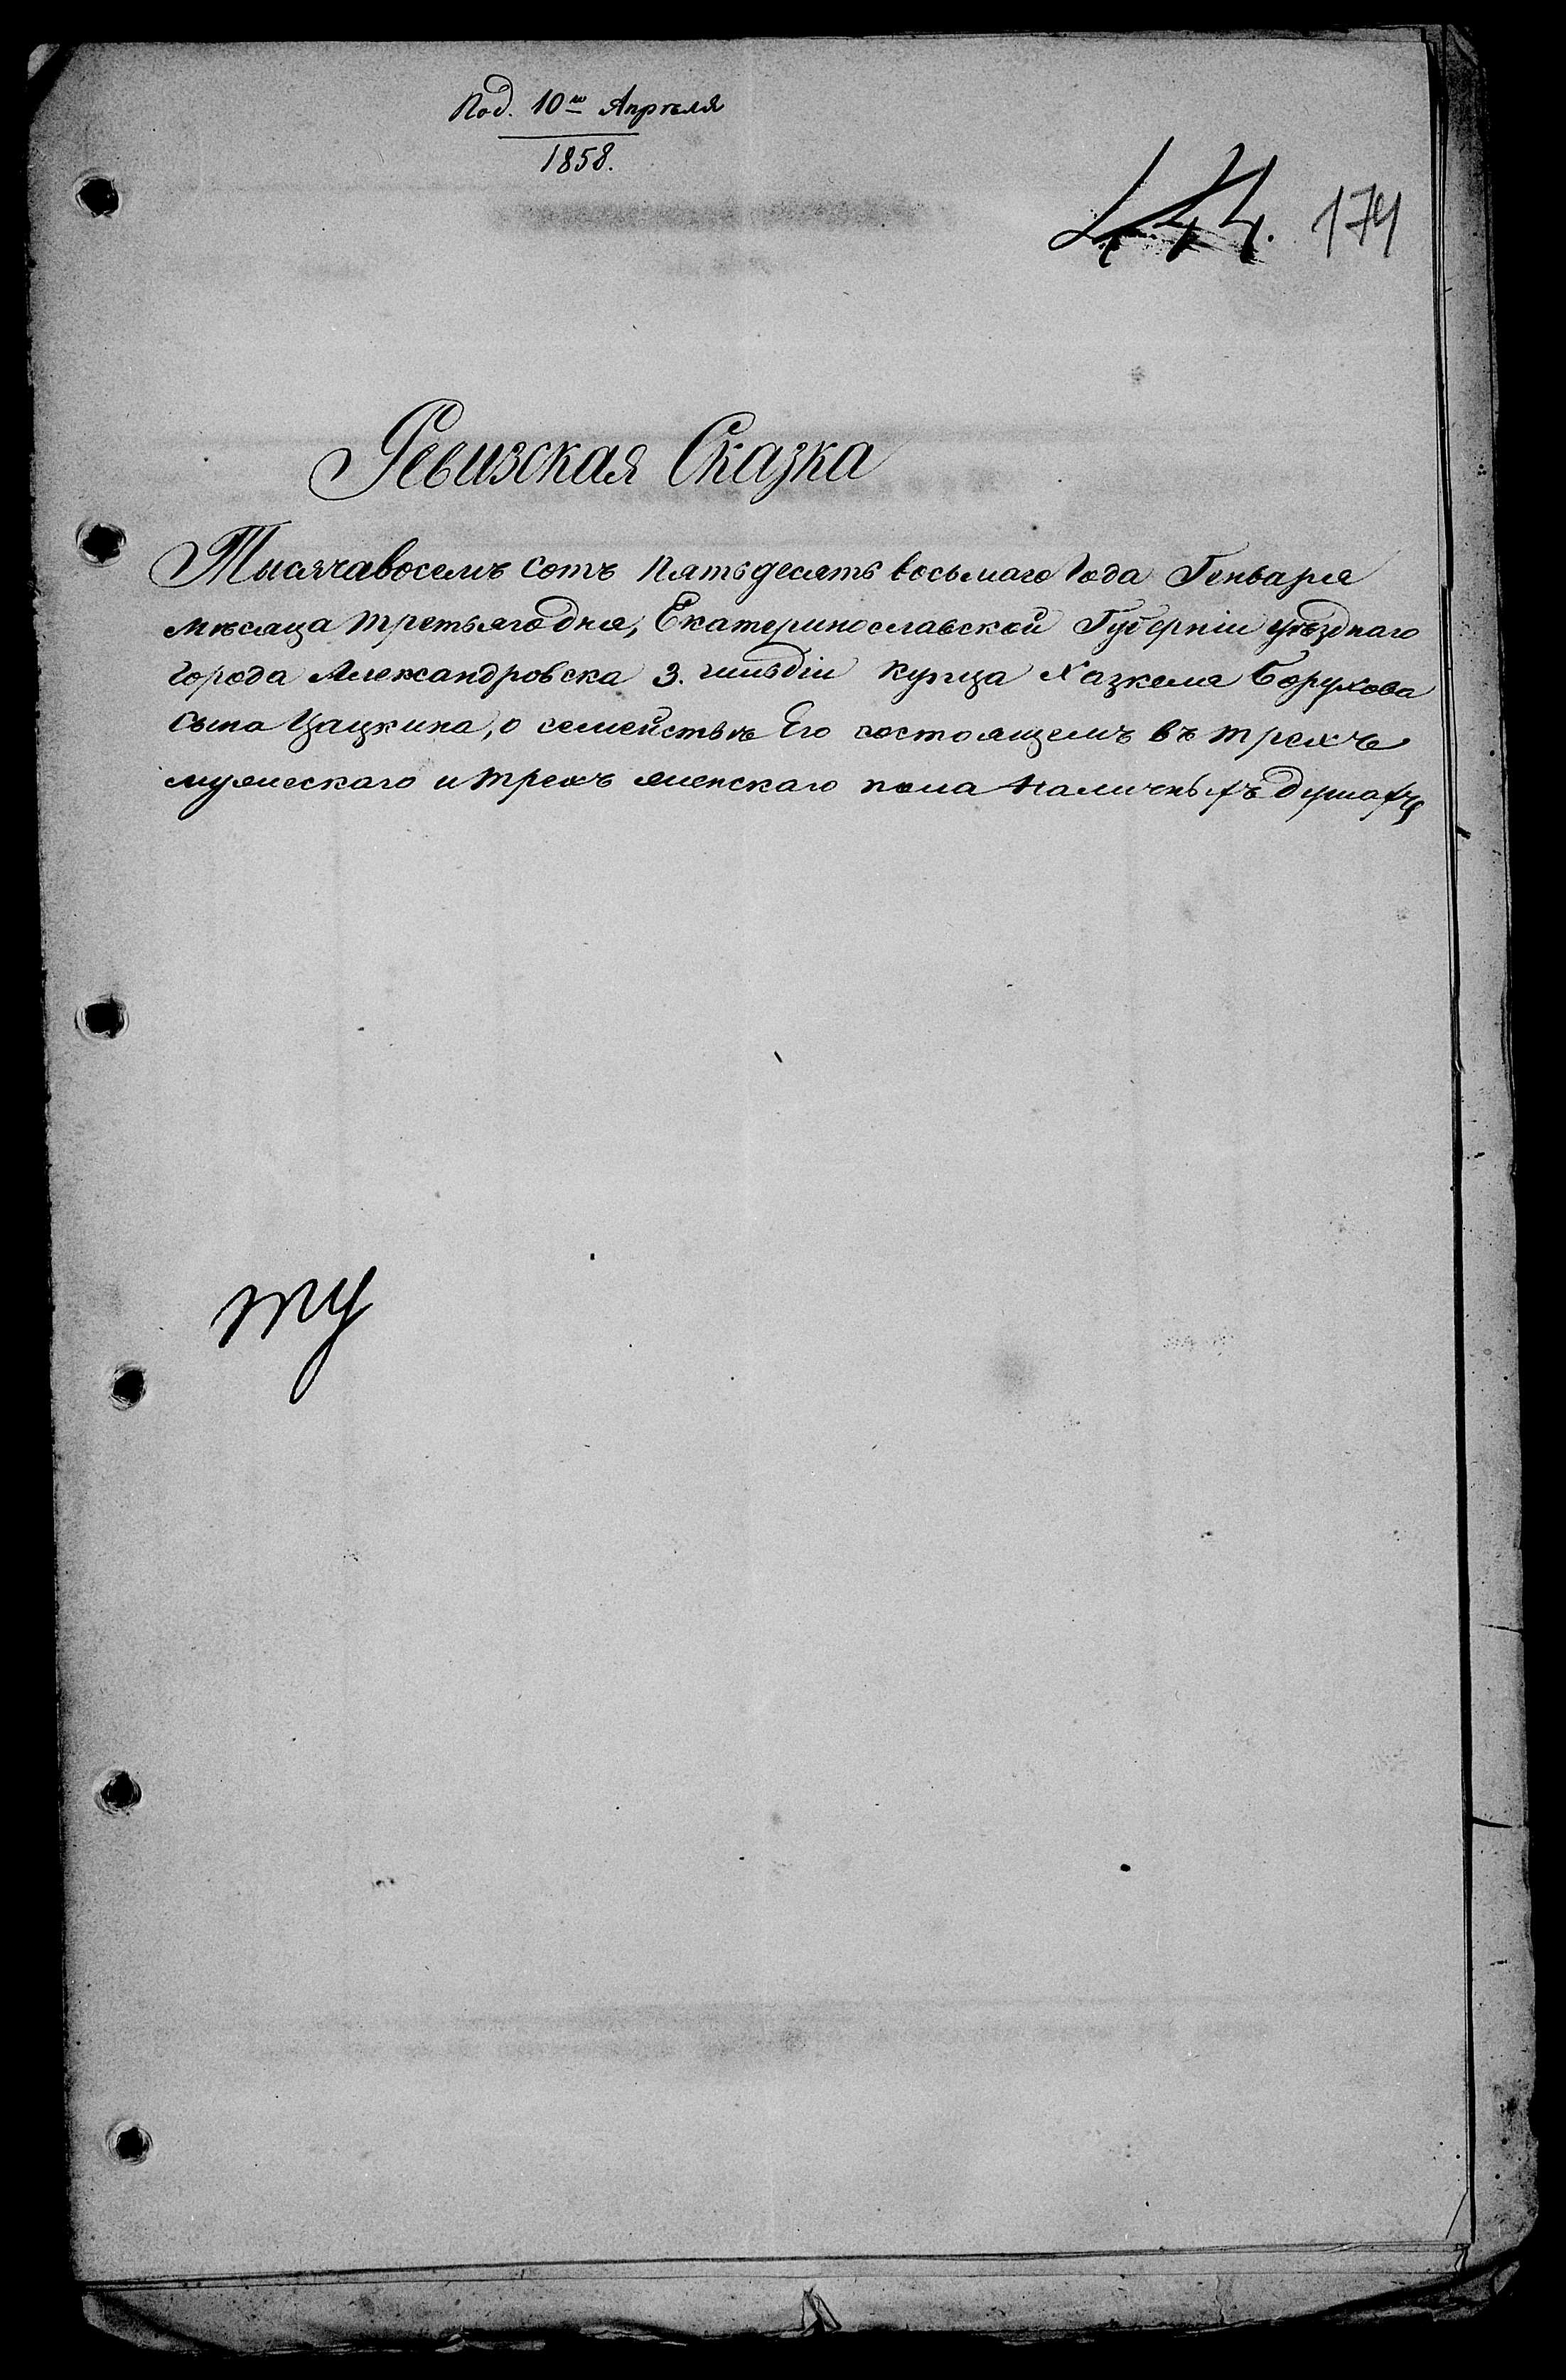 Под. 10го Апрѣля
1858.
174
Ревизская Сказка
Тысячавосемъ сотъ пятьдесять восьмаго Года Генваря
мѣсяца третьягодня, Екатеринославской Губерніи уѣзднаго
города Александровска 3. гильдіи купца Хазкеля Борухова
сына Цацкина, о семействѣ Его состоящемъ въ трехъ
мужескаго и трехъ женскаго пола наличныхъ душахъ